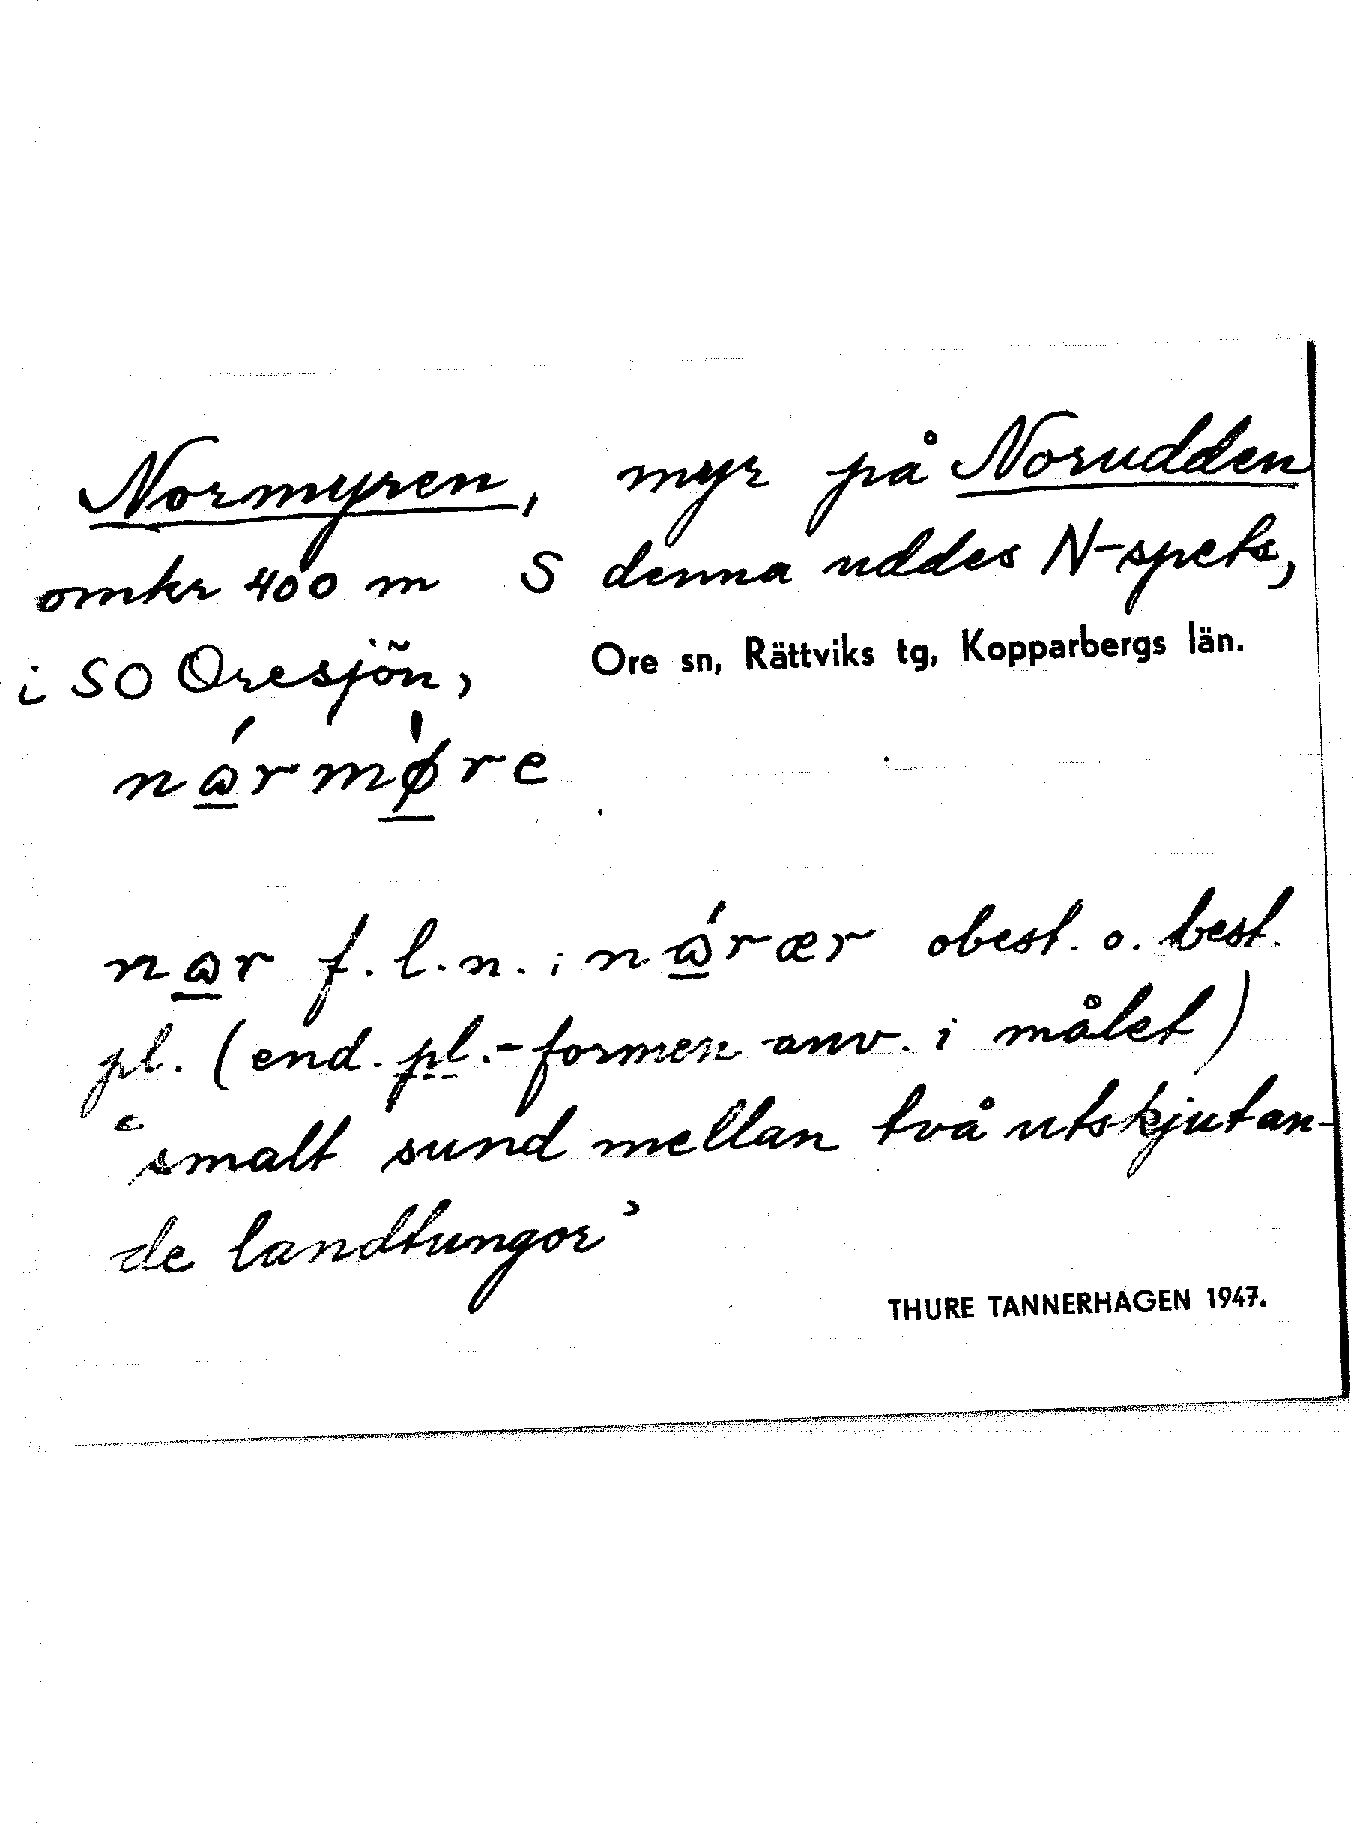 Normyren, myr på Norudden
omkr 400 m S denna uddes N-spets,
i SO Oresjön, Ore sn, Rättviks tg, Kopparbergs län.
nώ̲rmø̲̀re
nω̲r f. l. n. ; nώ̲rær obest. o. best.
pl. (end. pl.-formen anv. i målet)
‘smalt sund mellan två utskjutan-
de landtungor’
THURE TANNERHAGEN 1947.